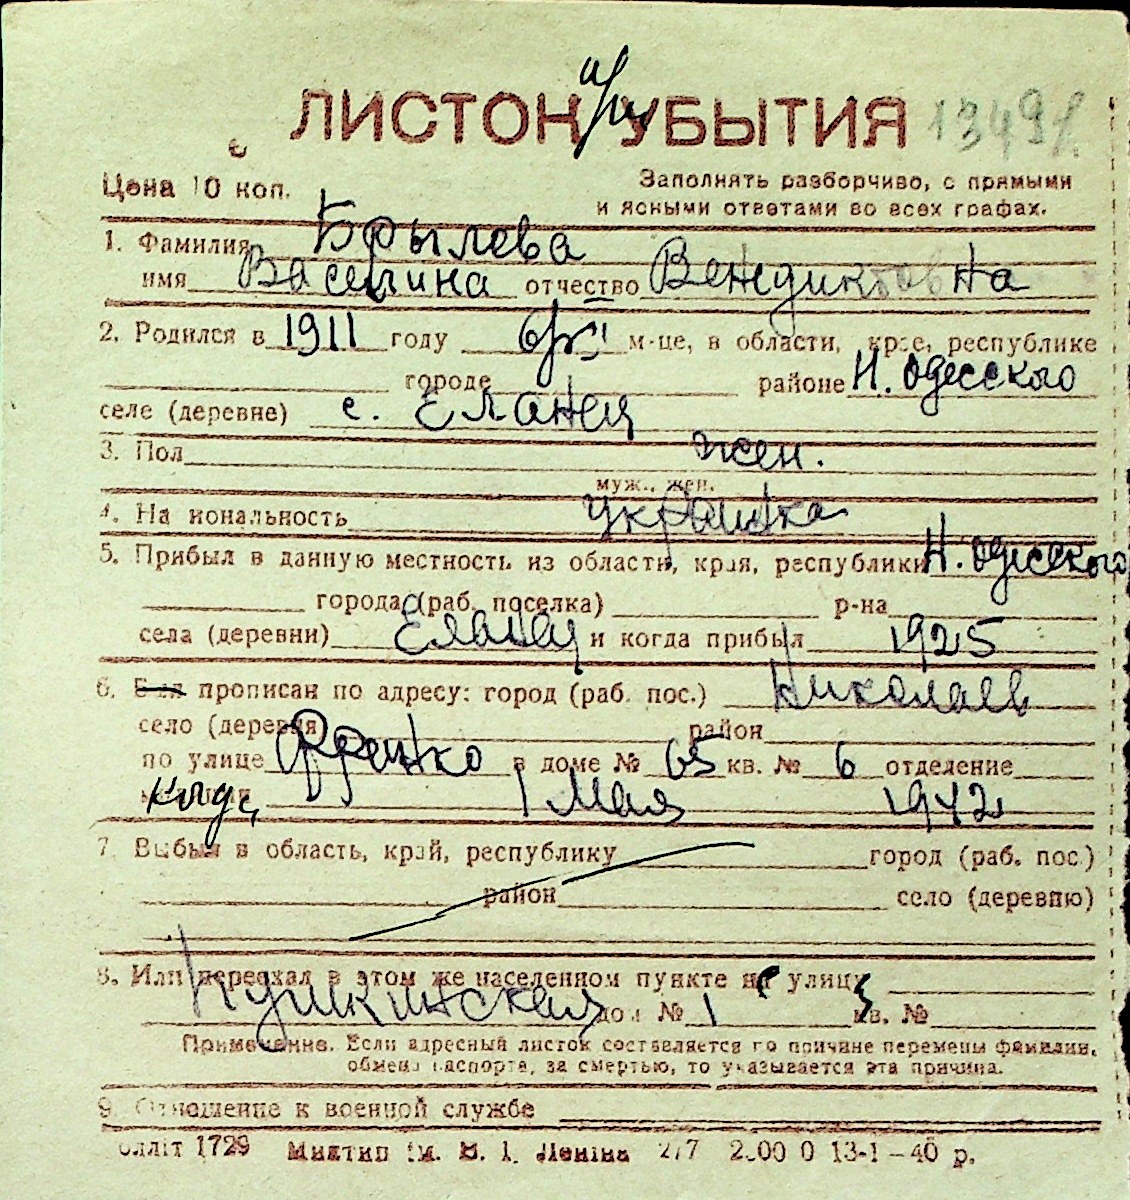 ЛИСТОК УБЫТИЯ 1349
Цена 10 коп. Заполнять разборчиво, с прямыми
и ясными ответами во всех графах.
1. Фамилия Брылева
имя Василина отчество Вендиктовна
2. Родился в 1911 году 6/XI м-це, в области, крае, республике
городе районе Н. Одесского
селе (деревне) с. Еланец
3. Пол жен.
муж., жен.
4. Национальность украинка
5. Прибыл в данную местность из области, края, республики Н. Одесского
города (раб. поселка) р-на
села (деревни) Еланец и когда прибыл 1925
6. Был прописан по адресу: город (раб. пос.) Николаев
село (деревня) район
по улице Франко в доме № 65 кв. № 6 отделение
милиции 1 Мая 1942
7. Выбыл в область, край, республику город (раб. пос.)
район село (деревню)
8. Или переехал в этом же населенном пункте на улицу
Пушкинская дом № 1 кв. №
Примечание. Если адресный листок составляется по причине перемены фамилии,
обмена паспорта, за смертью, то указывается эта причина.
9. Отношение к военной службе
олліт 1729 Миктип ім. В. І. Леніна 277 2.00 0 13-1-40 р.